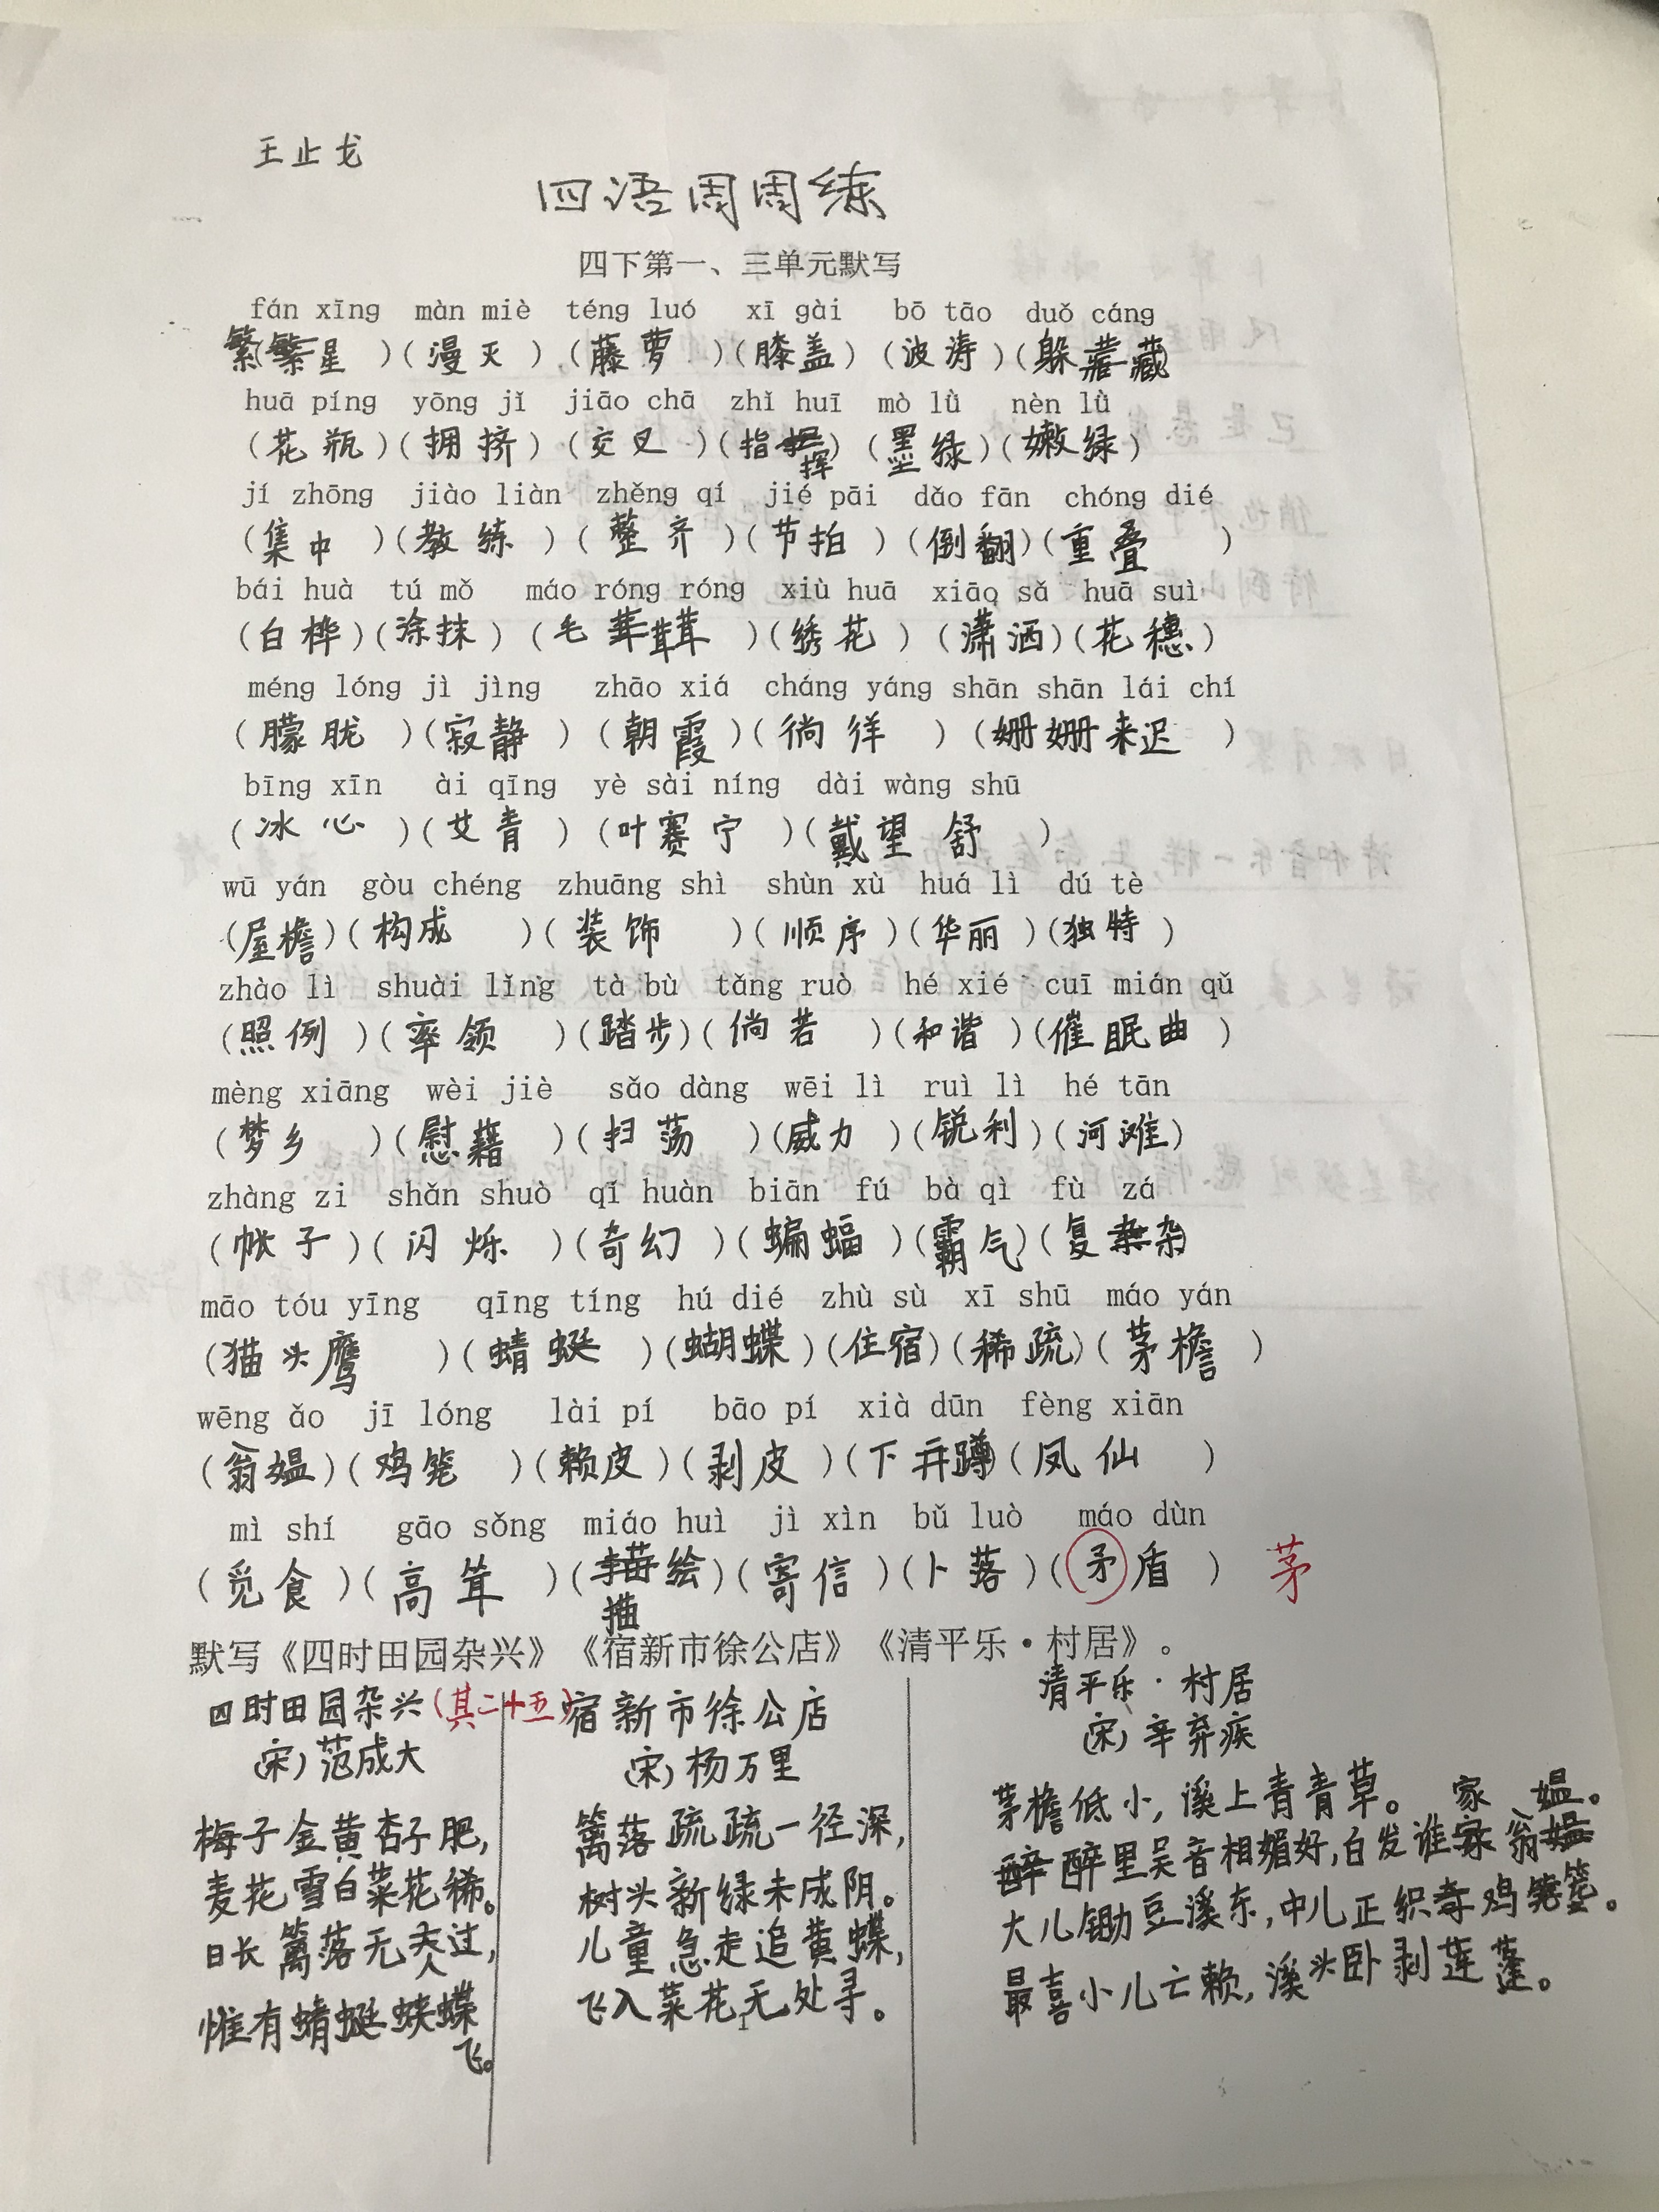 王止戈
四语周周练
四下第一、三单元默写
fán xīng  màn miè  téng luó  xī gài  bō tāo  duǒ cáng
繁(繁星)(漫灭)(藤萝)(膝盖)(波涛)(躲藏藏)
huā píng  yōng jǐ  jiāo chā  zhǐ huī  mò lǜ  nèn lǜ
(花瓶)(拥挤)(交叉)(指挥)(墨绿)(嫩绿)
jí zhōng  jiào liàn  zhěng qí  jié pāi  dǎo fān  chóng dié
(集中)(教练)(整齐)(节拍)(倒翻)(重叠)
bái huà  tú mǒ  máo róng róng  xiù huā  xiāo sǎ  huā suì
(白桦)(涂抹)(毛茸茸)(绣花)(潇洒)(花穗)
méng lóng jì jìng  zhāo xiá  cháng yáng shān shān lái chí
(朦胧)(寂静)(朝霞)(徜徉)(姗姗来迟)
bīng xīn  ài qīng  yè sài níng  dài wàng shū
(冰心)(艾青)(叶赛宁)(戴望舒)
wū yán  gòu chéng  zhuāng shì  shùn xù  huá lì  dú tè
(屋檐)(构成)(装饰)(顺序)(华丽)(独特)
zhào lì  shuài lǐng  tà bù  tǎng ruò  hé xié  cuī mián qǔ
(照例)(率领)(踏步)(倘若)(和谐)(催眠曲)
mèng xiāng  wèi jiè  sǎo dàng  wēi lì  ruì lì  hé tān
(梦乡)(慰藉)(扫荡)(威力)(锐利)(河滩)
zhàng zi  shǎn shuò  qí huàn  biān fú  bà qì  fù zá
(帐子)(闪烁)(奇幻)(蝙蝠)(霸气)(复杂)
māo tóu yīng  qīng tíng  hú dié  zhù sù  xī shū  máo yán
(猫头鹰)(蜻蜓)(蝴蝶)(住宿)(稀疏)(茅檐)
wēng ǎo  jī lóng  lài pí  bāo pí  xià dūn  fèng xiān
(翁媪)(鸡笼)(赖皮)(剥皮)(下蹲)(凤仙)
mì shí  gāo sǒng  miáo huì  jì xìn  bǔ luò  máo dùn
(觅食)(高耸)(描绘)(寄信)(卜落)(矛盾) 茅
默写《四时田园杂兴》《宿新市徐公店》《清平乐·村居》。
四时田园杂兴(其二十五)
(宋)范成大
梅子金黄杏子肥,
麦花雪白菜花稀。
日长篱落无人过,
惟有蜻蜓蛱蝶
飞。
宿新市徐公店
(宋)杨万里
篱落疏疏一径深,
树头新绿未成阴。
儿童急走追黄蝶,
飞入菜花无处寻。
清平乐·村居
(宋)辛弃疾
茅檐低小,溪上青青草。
醉里吴音相媚好,白发谁家翁媪。
大儿锄豆溪东,中儿正织鸡笼。
最喜小儿亡赖,溪头卧剥莲蓬。